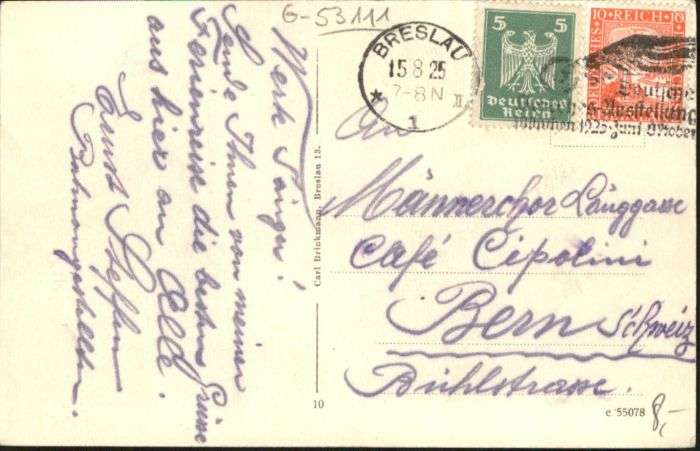 G-53111
Werte Sänger!
Sende Ihnen von meiner
Ferienreise die besten Grüsse
aus hier an Alle.
Ernst Steffen
Bahnangestellter
Carl Brinkmann, Breslau 13.
10
BRESLAU
15 8 25
7-8 N
* 1 II
5 5
Deutsches
Reich
10 REICH 10
Deutsche
Ausstellung
München 1925 Juni Oktober
An
Männerchor Länggasse
Café Cipolini
Bern Schweiz
Bühlstrasse.
e 55078
8,-